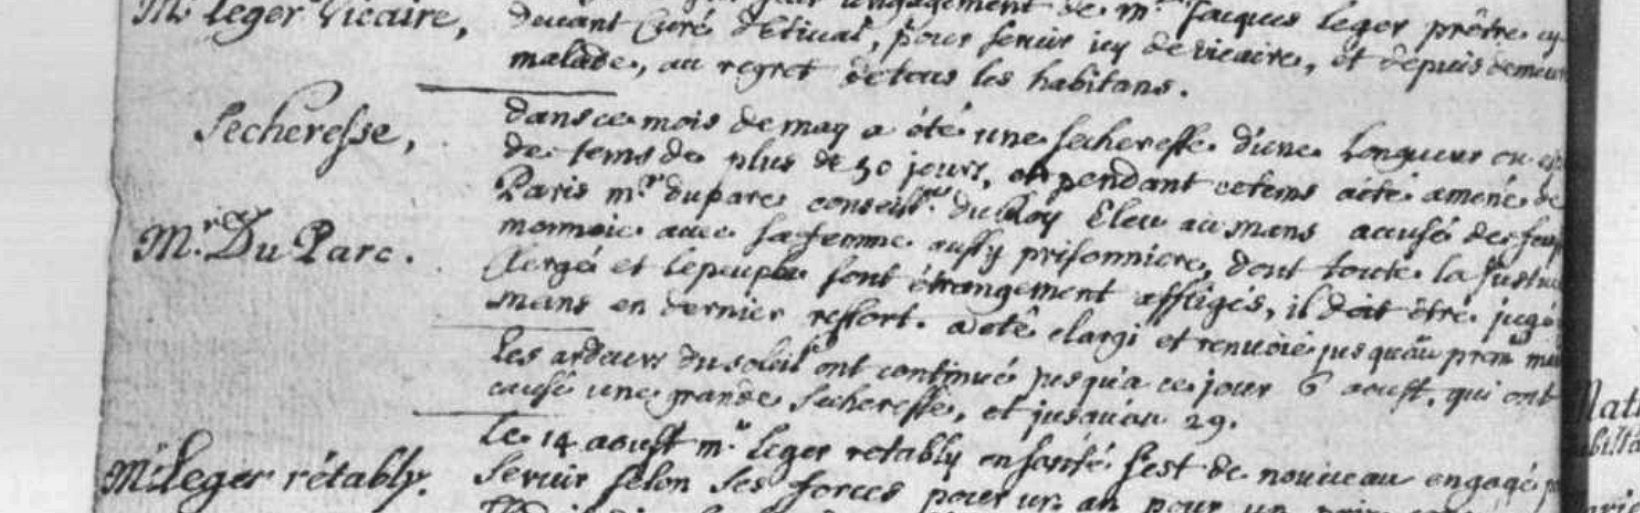 Mr. leger Vicaire,
engagement de mr. Jacques leger prêtre cy
devant Curé d'Etiual, pour seruir icy de vicaire, et depuis demeuré
malade, au regret de tous les habitans.
Secheresse,
dans ce mois de may a été une secheresse d'une longueur ou
de tems de plus de 50 jours, et pendant ce tems a été amené de
Paris mr. duparc conseillr. du Roy Eleu au mans accusé de fausse
Mr. Du Parc.
monnoie auec sa femme aussy prisonniere, dont toute la Justice
Clergé et le peuple sont étrangement affligés, il doit être jugé
mans en dernier ressort. a eté elargi et renuoié jusqu'au prem
les ardeurs du soleil ont continué jusqu'a ce jour 6 aoust, qui ont
causé une grande secheresse, et jusqu'au 29.
le 14 aoust mr. leger retably en santé s'est de nouueau engagé
Mr. Leger rétably.
seruir selon ses forces pour un an pour un